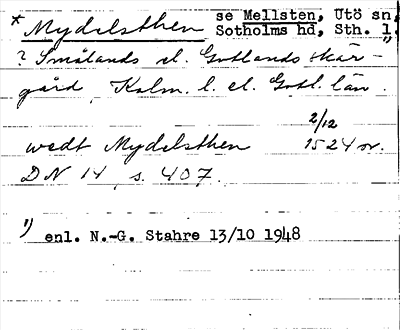 * Mydelsthen se Mellsten, Utö sn,
Sotholms hd, Sth. l. 1)
? Smålands el. Gotlands skär-
gård, Kalm. l. el. Gotl. län.
wedt Mydelsthen 2/12 1524 or.
DN 14, s. 407.
1) enl. N.-G. Stahre 13/10 1948